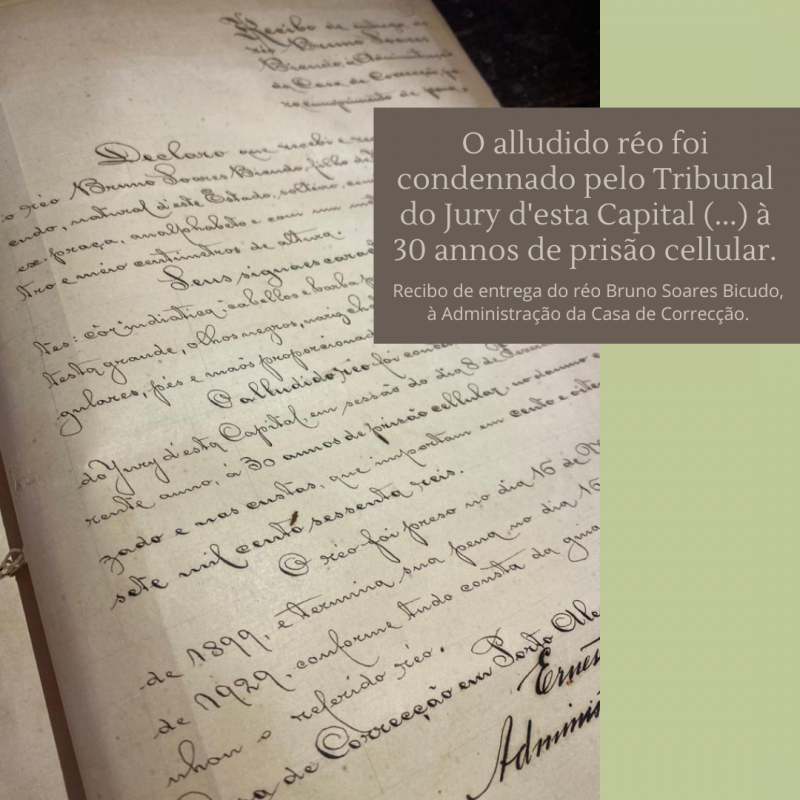 Recibo de entrega do
réo Bruno Soares
Bicudo, á Administração
da Casa de Correcção, pa
ra cumprimento de pena.
Declaro que recebi o
o réo Bruno Soares Bicudo, filho de
endo, natural d'este Estado, solteiro,
ex-praça, analphabeto e com um
tro e meio centimetros de altura.
Seus signaes carac
tes: côr indiatica, cabellos e barba
testa grande, olhos negros, nariz
gulares, pés e mãos proporcionad
O alludido réo foi con
do Jury d'esta Capital, em sessão do dia 8 de
rente anno, á 30 annos de prisão cellular, no
zado e nas custas, que importam em cento e
sete mil cento sessenta reis.
O réo foi preso no dia 16 de
de 1899, e termina sua pena no dia 16
de 1929, conforme tudo consta da guia
nhou o referido réo.
de Correcção em Porto Ale
Ernes
Adminis
O alludido réo foi
condennado pelo Tribunal
do Jury d'esta Capital (...) à
30 annos de prisão cellular.
Recibo de entrega do réo Bruno Soares Bicudo,
à Administração da Casa de Correcção.